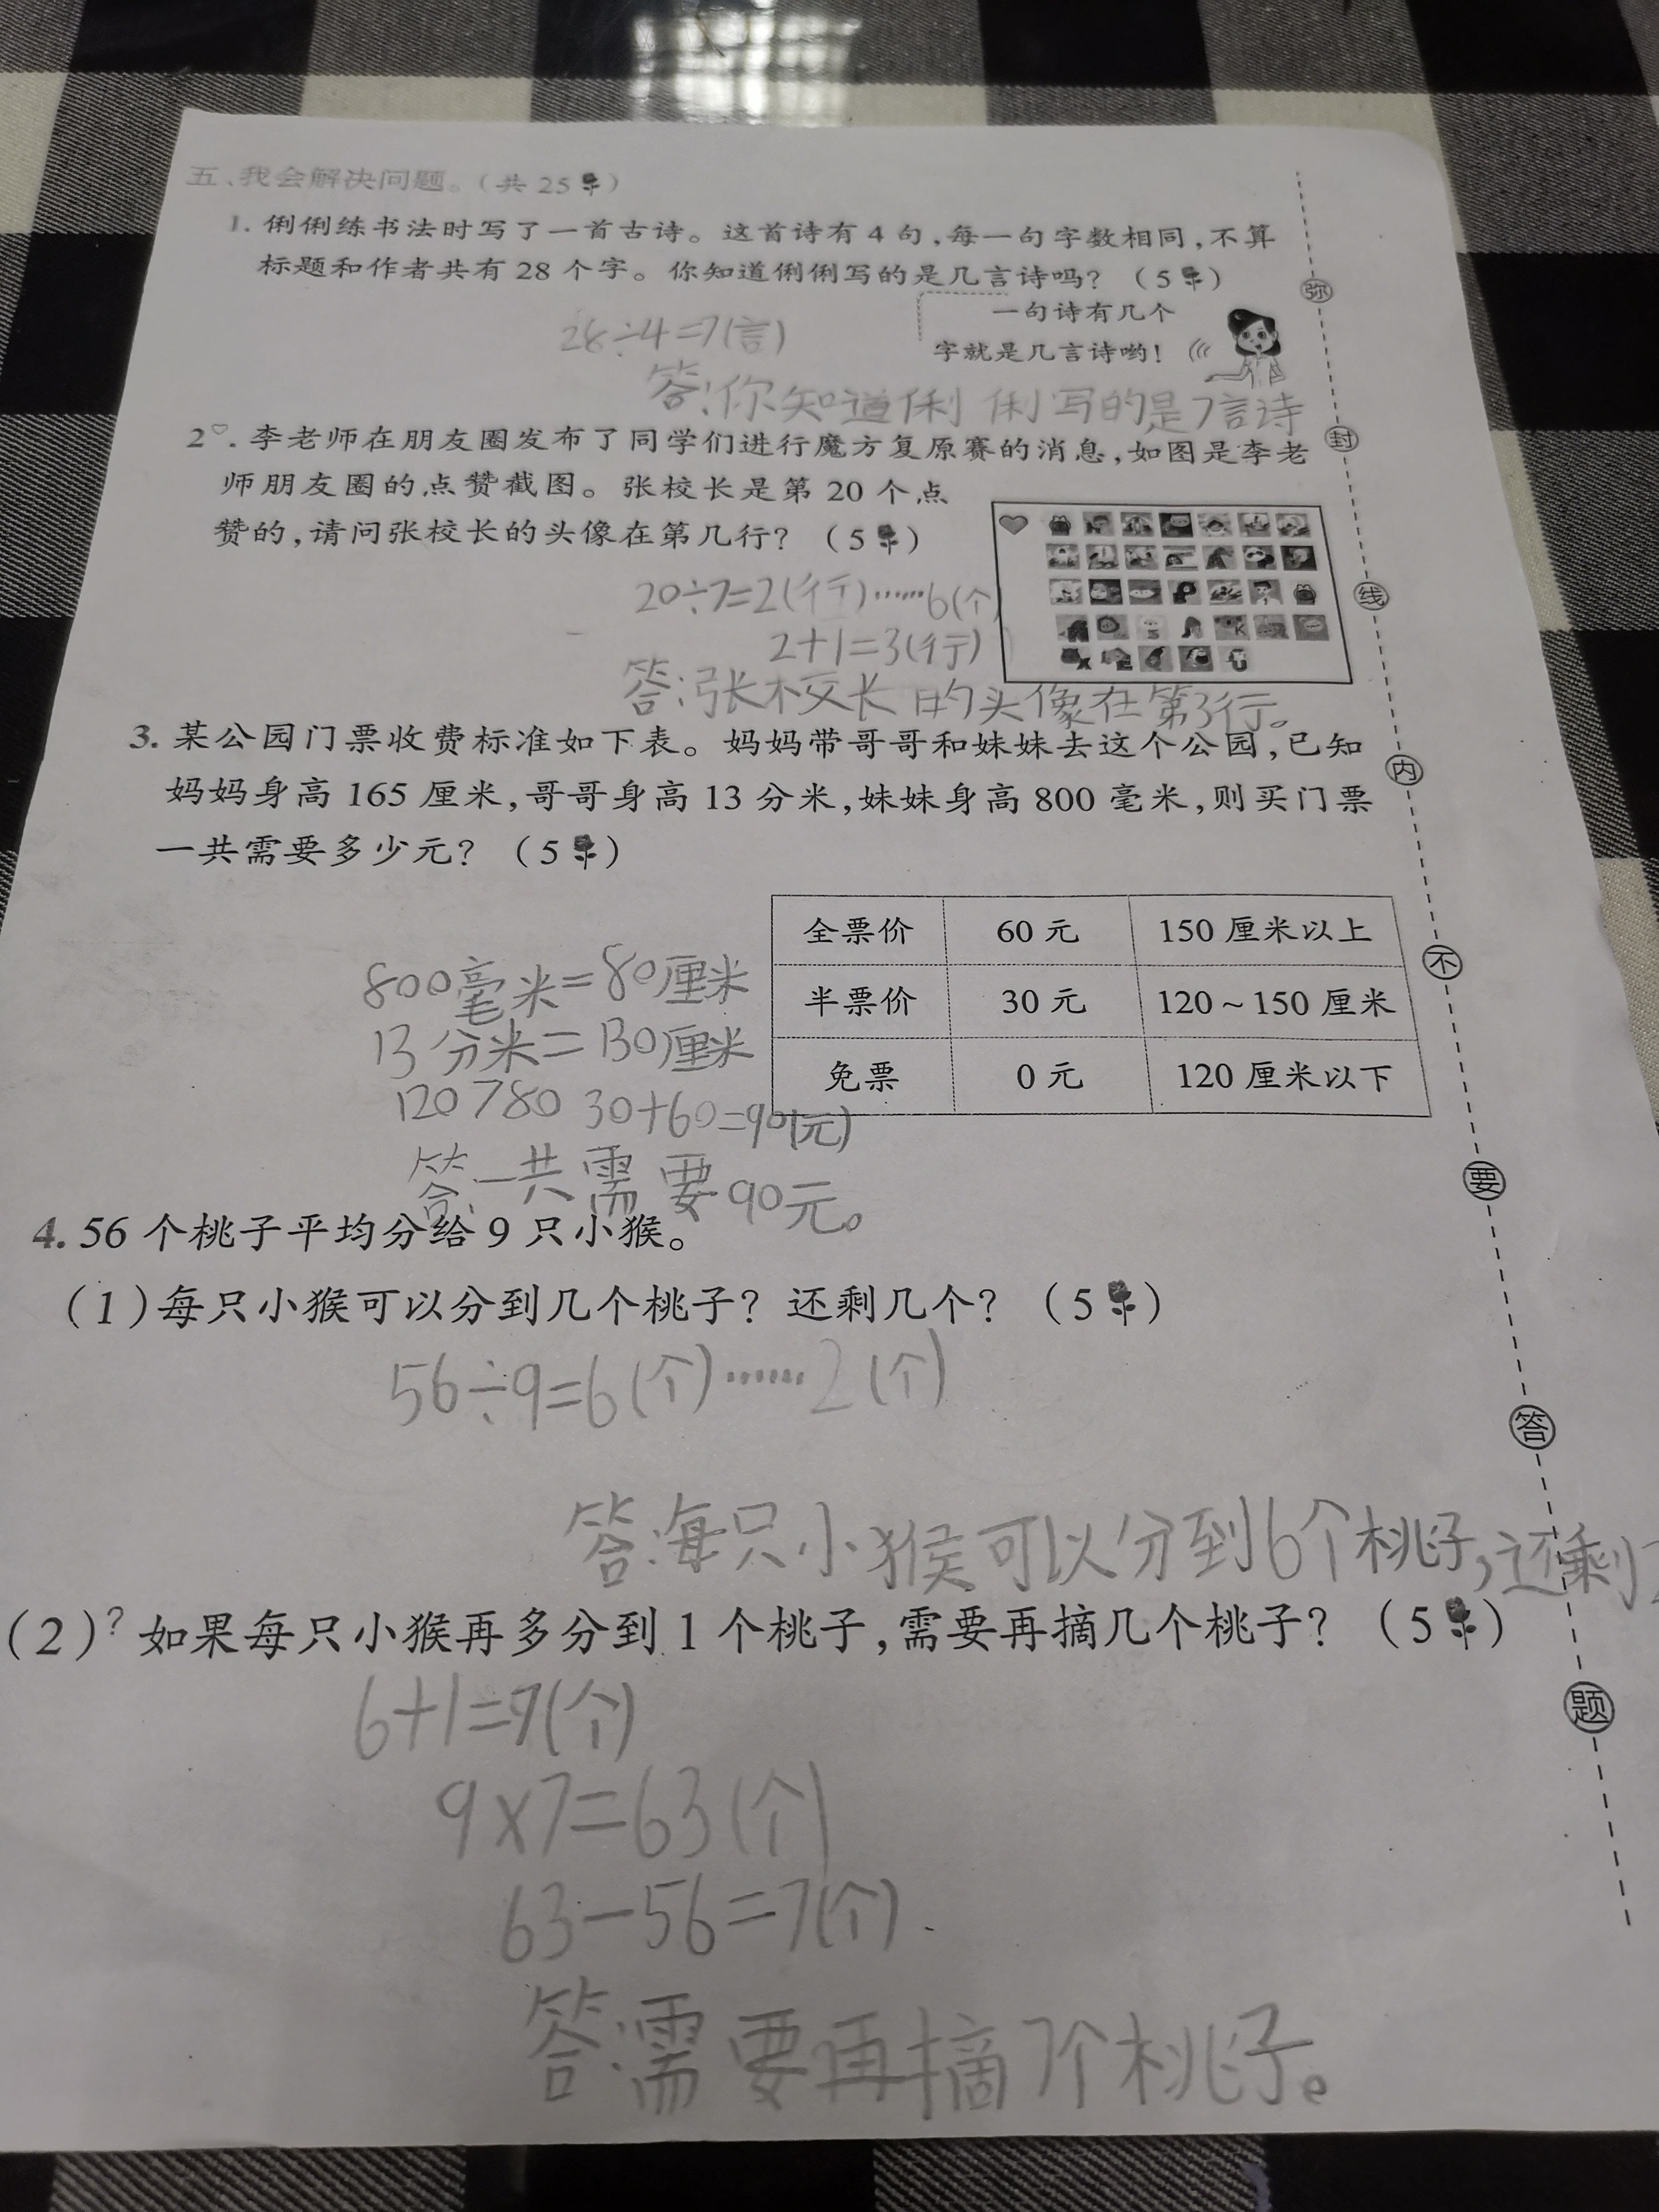 五、我会解决问题。(共 25 )
1. 俐俐练书法时写了一首古诗。这首诗有 4 句,每一句字数相同,不算
标题和作者共有 28 个字。你知道俐俐写的是几言诗吗? (5 )
一句诗有几个
字就是几言诗哟!
28÷4=7(言)
答:你知道俐俐写的是7言诗
2. 李老师在朋友圈发布了同学们进行魔方复原赛的消息,如图是李老
师朋友圈的点赞截图。张校长是第 20 个点
赞的,请问张校长的头像在第几行? (5 )
20÷7=2(行)……6(个
2+1=3(行)
答:张校长的头像在第3行。
3. 某公园门票收费标准如下表。妈妈带哥哥和妹妹去这个公园,已知
妈妈身高 165 厘米,哥哥身高 13 分米,妹妹身高 800 毫米,则买门票
一共需要多少元? (5 )
全票价 60 元 150 厘米以上
半票价 30 元 120~150 厘米
免票 0 元 120 厘米以下
800毫米=80厘米
13分米=130厘米
120>80 30+60=90(元)
答:一共需要90元。
4. 56 个桃子平均分给 9 只小猴。
(1)每只小猴可以分到几个桃子? 还剩几个? (5 )
56÷9=6(个)……2(个)
答:每只小猴可以分到6个桃子,还剩
(2)? 如果每只小猴再多分到 1 个桃子,需要再摘几个桃子? (5 )
6+1=7(个)
9×7=63(个)
63-56=7(个).
答:需要再摘7个桃子。
弥
封
线
内
不
要
答
题